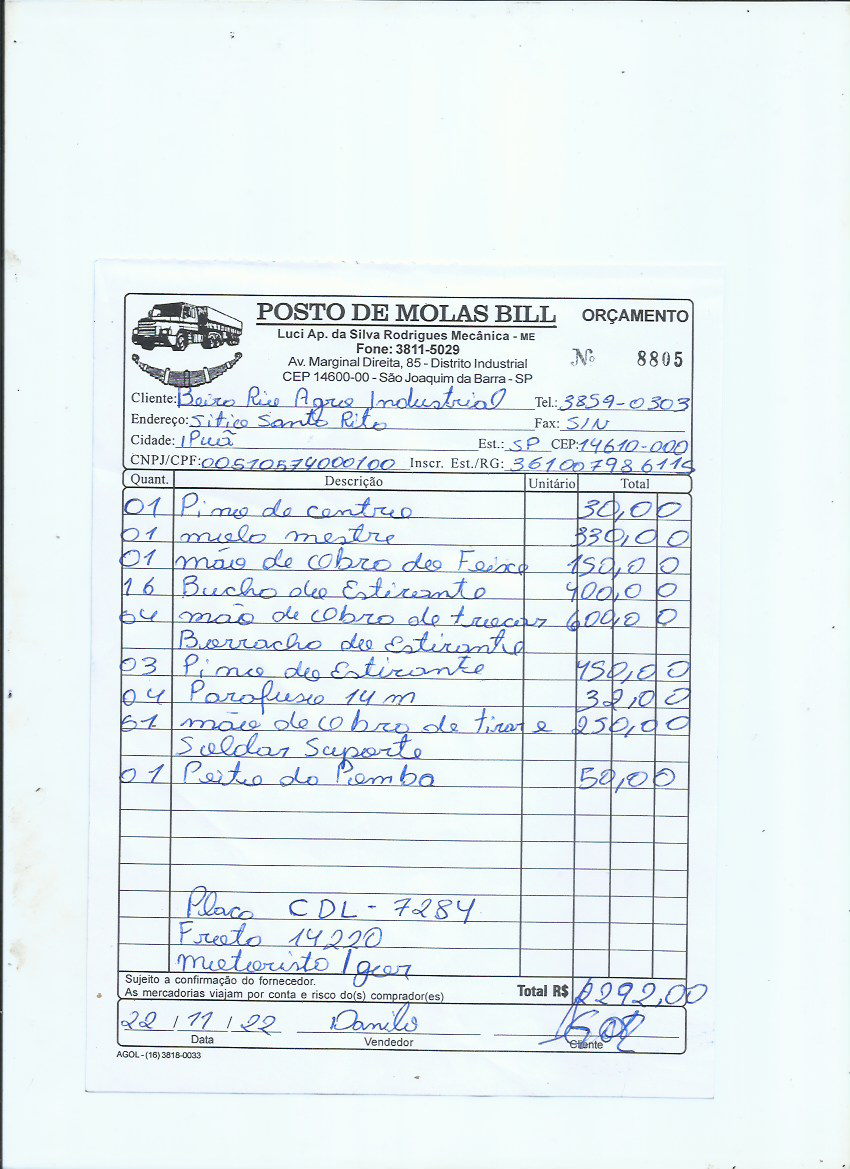 POSTO DE MOLAS BILL ORÇAMENTO
Luci Ap. da Silva Rodrigues Mecânica - ME
Fone: 3811-5029
Nº 8805
Av. Marginal Direita, 85 - Distrito Industrial
CEP 14600-00 - São Joaquim da Barra - SP
Cliente: Beira Rio Agro Industrial Tel.: 3859-0303
Endereço: Sitio Santa Rita Fax: S/N
Cidade: Ipuã Est.: SP CEP: 14610-000
CNPJ/CPF: 00510574000100 Inscr. Est./RG: 361007986115
Quant. Descrição Unitário Total
01 Pino de centro 30,00
01 molo mestre 330,00
01 mão de obra do Feixe 150,00
16 Bucha do Estirante 400,00
04 mão de obra de trocar 600,00
Borracha do Estirante
03 Pino do Estirante 450,00
04 Parafuso 14 m 32,00
01 mão de obra de tirar e 250,00
Soldar Suporte
01 Peito do Pomba 50,00
Placa CDL-7284
Frota 14220
motorista Igor
Sujeito a confirmação do fornecedor.
As mercadorias viajam por conta e risco do(s) comprador(es)
Total R$ 2292,00
22 / 11 / 22 Danilo Igor
Data Vendedor Cliente
AGOL - (16) 3818-0033